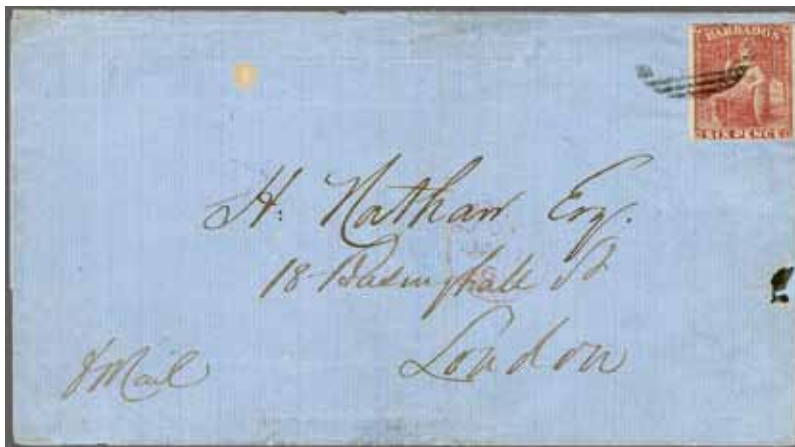 BARBADOS
SIX PENCE
H. Nathan Esq.
18 Basinghall St
London
Mail